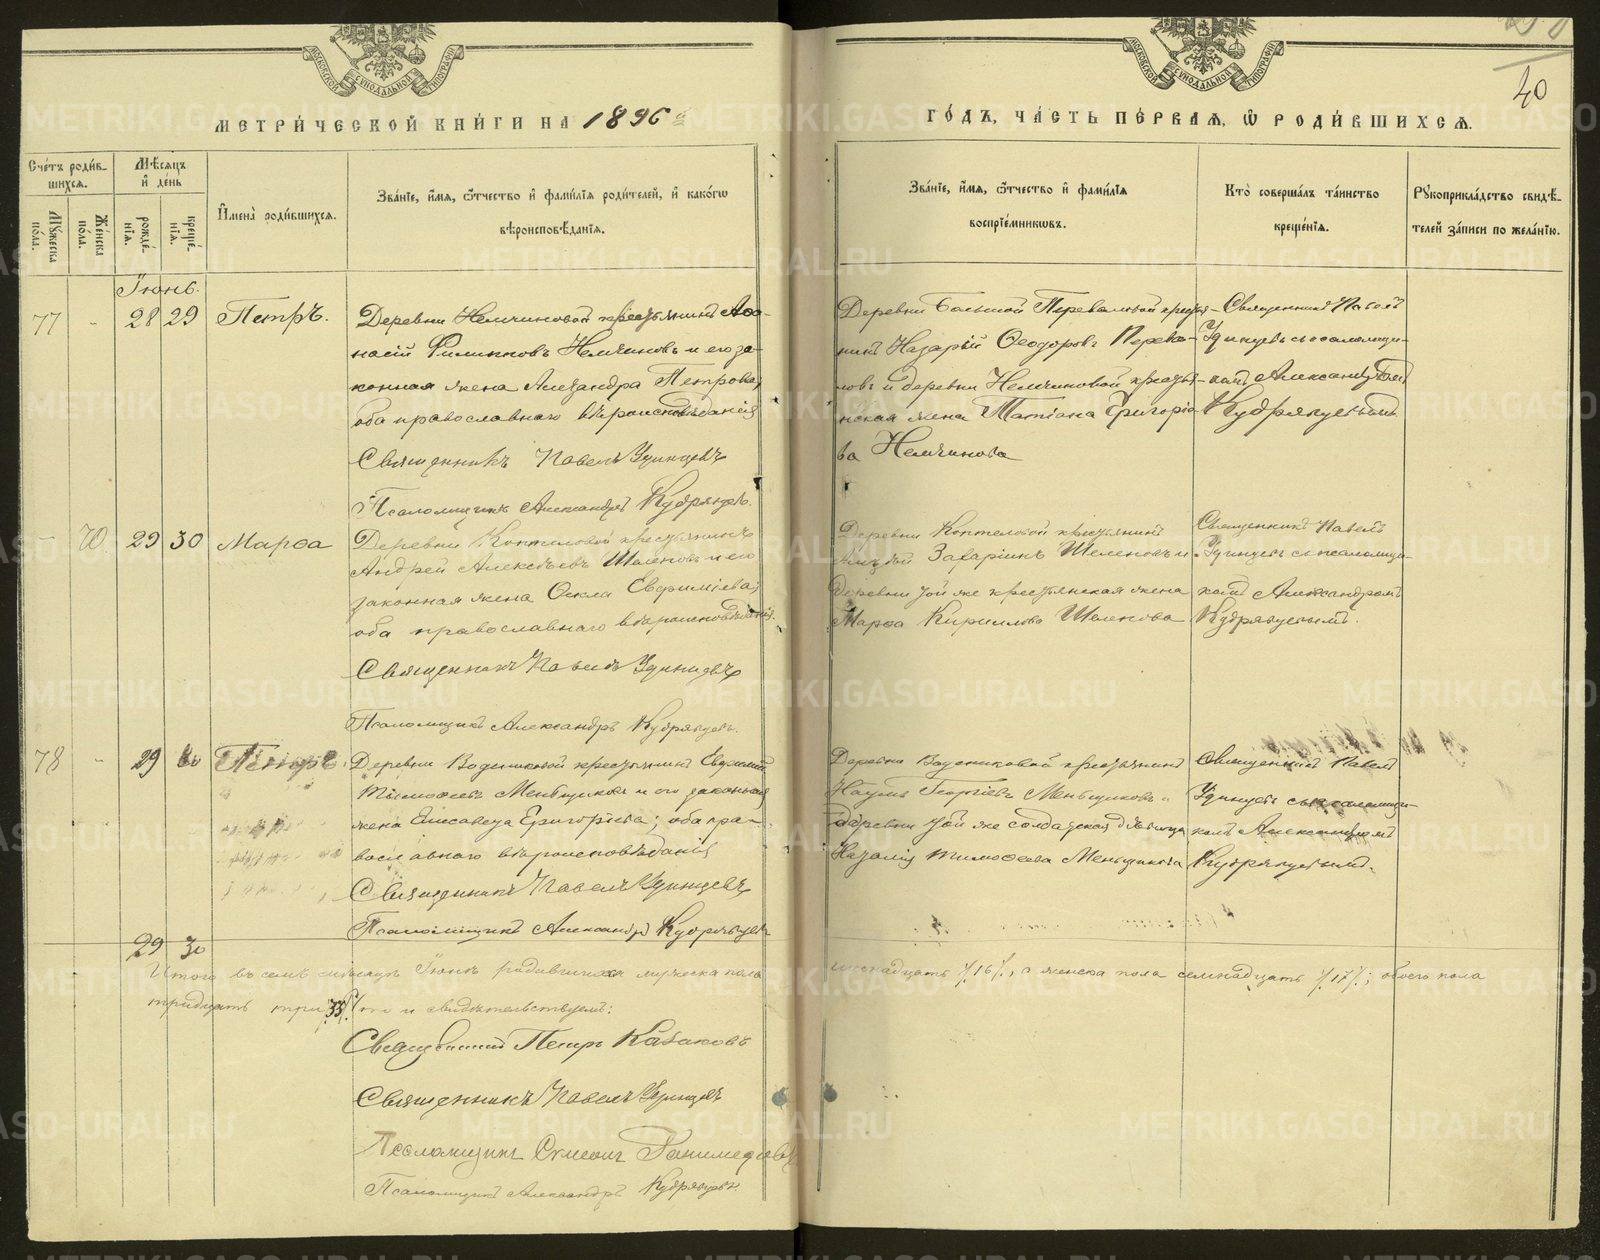 МОСКОВСКОЙ СУНОДАЛЬНОЙ ТИПОГРАФІИ
МОСКОВСКОЙ СУНОДАЛЬНОЙ ТИПОГРАФІИ
40
МЕТРИ́ЧЕСКОЙ КНИ́ГИ НА 1896 й
ГО́ДЪ, ЧА́СТЬ ПЕ́РВАЯ, Ѡ РОДИ́ВШИХСЯ.
Сче́тъ роди́вшихся.
Мѣ́сяцъ и҆ де́нь
И҆мена̀ роди́вшихся.
Зва́нїе, и҆́мя, ѻ҆́тчество и҆ фами́лїя роди́телей, и҆ како́гѡ
вѣроисповѣ́данїя.
Му́жеска по́ла.
Же́нска по́ла.
рожде́нїя.
креще́нїя.
Зва́нїе, и҆́мя, ѻ҆́тчество и҆ фами́лїя
воспрїе́мникѡвъ.
Кто̀ соверша́лъ та́инство
креще́нїя.
Рꙋкоприкла́дство свидѣ́телей за́писи по жела́нїю.
Іюнь.
77 - 28 29 Петръ.
Деревни Немчиновой крестьянинъ Аѳа-
насій Филипповъ Немчиновъ и его за-
конная жена Александра Петрова;
оба православнаго вѣроисповѣданія
Священникъ Павелъ Удинцевъ
Псаломщикъ Александръ Кудрявцевъ.
Деревни Большой Переваловой кресть-
янинъ Назарій Ѳеодоровъ Перева-
ловъ и деревни Немчиновой кресть-
янская жена Татіана Григоріе-
ва Немчинова
Священникъ Павелъ
Удинцевъ съ псаломщи-
комъ Александромъ
Кудрявцевымъ
- 70 29 30 Марѳа
Деревни Коптеловой крестьянинъ
Андрей Алексѣевъ Шеленовъ и его
законная жена Ѳекла Евфиміева;
оба православнаго вѣроисповѣданія.
Священникъ Павелъ Удинцевъ
Псаломщикъ Александръ Кудрявцевъ.
Деревни Коптеловой крестьянинъ
Захаріинъ Шеленовъ и
деревни той же крестьянская жена
Марѳа Кириллова Шеленова
Священникъ Павелъ
Удинцевъ съ псаломщи-
комъ Александромъ
Кудрявцевымъ.
78 - 29 30 Петръ.
Деревни Водениковой крестьянинъ Евфимій
Тимоѳеевъ Меньщиковъ и его законная
жена Елисавета Григорьева; оба пра-
вославнаго вѣроисповѣданія
Священникъ Павелъ Удинцевъ
Псаломщикъ Александръ Кудрявцевъ
Деревни Водениковой крестьянинъ
Наумъ Георгіевъ Меньщиковъ и
деревни той же солдатская дѣвица
Наталія Тимоѳеева Меньщикова
Священникъ Павелъ
Удинцевъ съ псаломщи-
комъ Александромъ
Кудрявцевымъ.
29 30
Итого въ семъ мѣсяцѣ Іюнѣ родившихся мужеска пола
шестнадцать /.16/., а женска пола семнадцать /.17/.; обоего пола
тридцать три /.33/. что и свидѣтельствуемъ:
Священникъ Петръ Казаковъ
Священникъ Павелъ Удинцевъ
Псаломщикъ
Псаломщикъ Александръ Кудрявцевъ.
METRIKI.GASO-URAL.RU